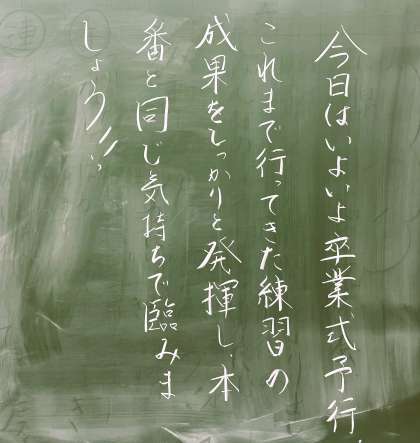 今日はいよいよ卒業式予行
これまで行ってきた練習の
成果をしっかりと発揮し、本
番と同じ気持ちで臨みま
しょう!!